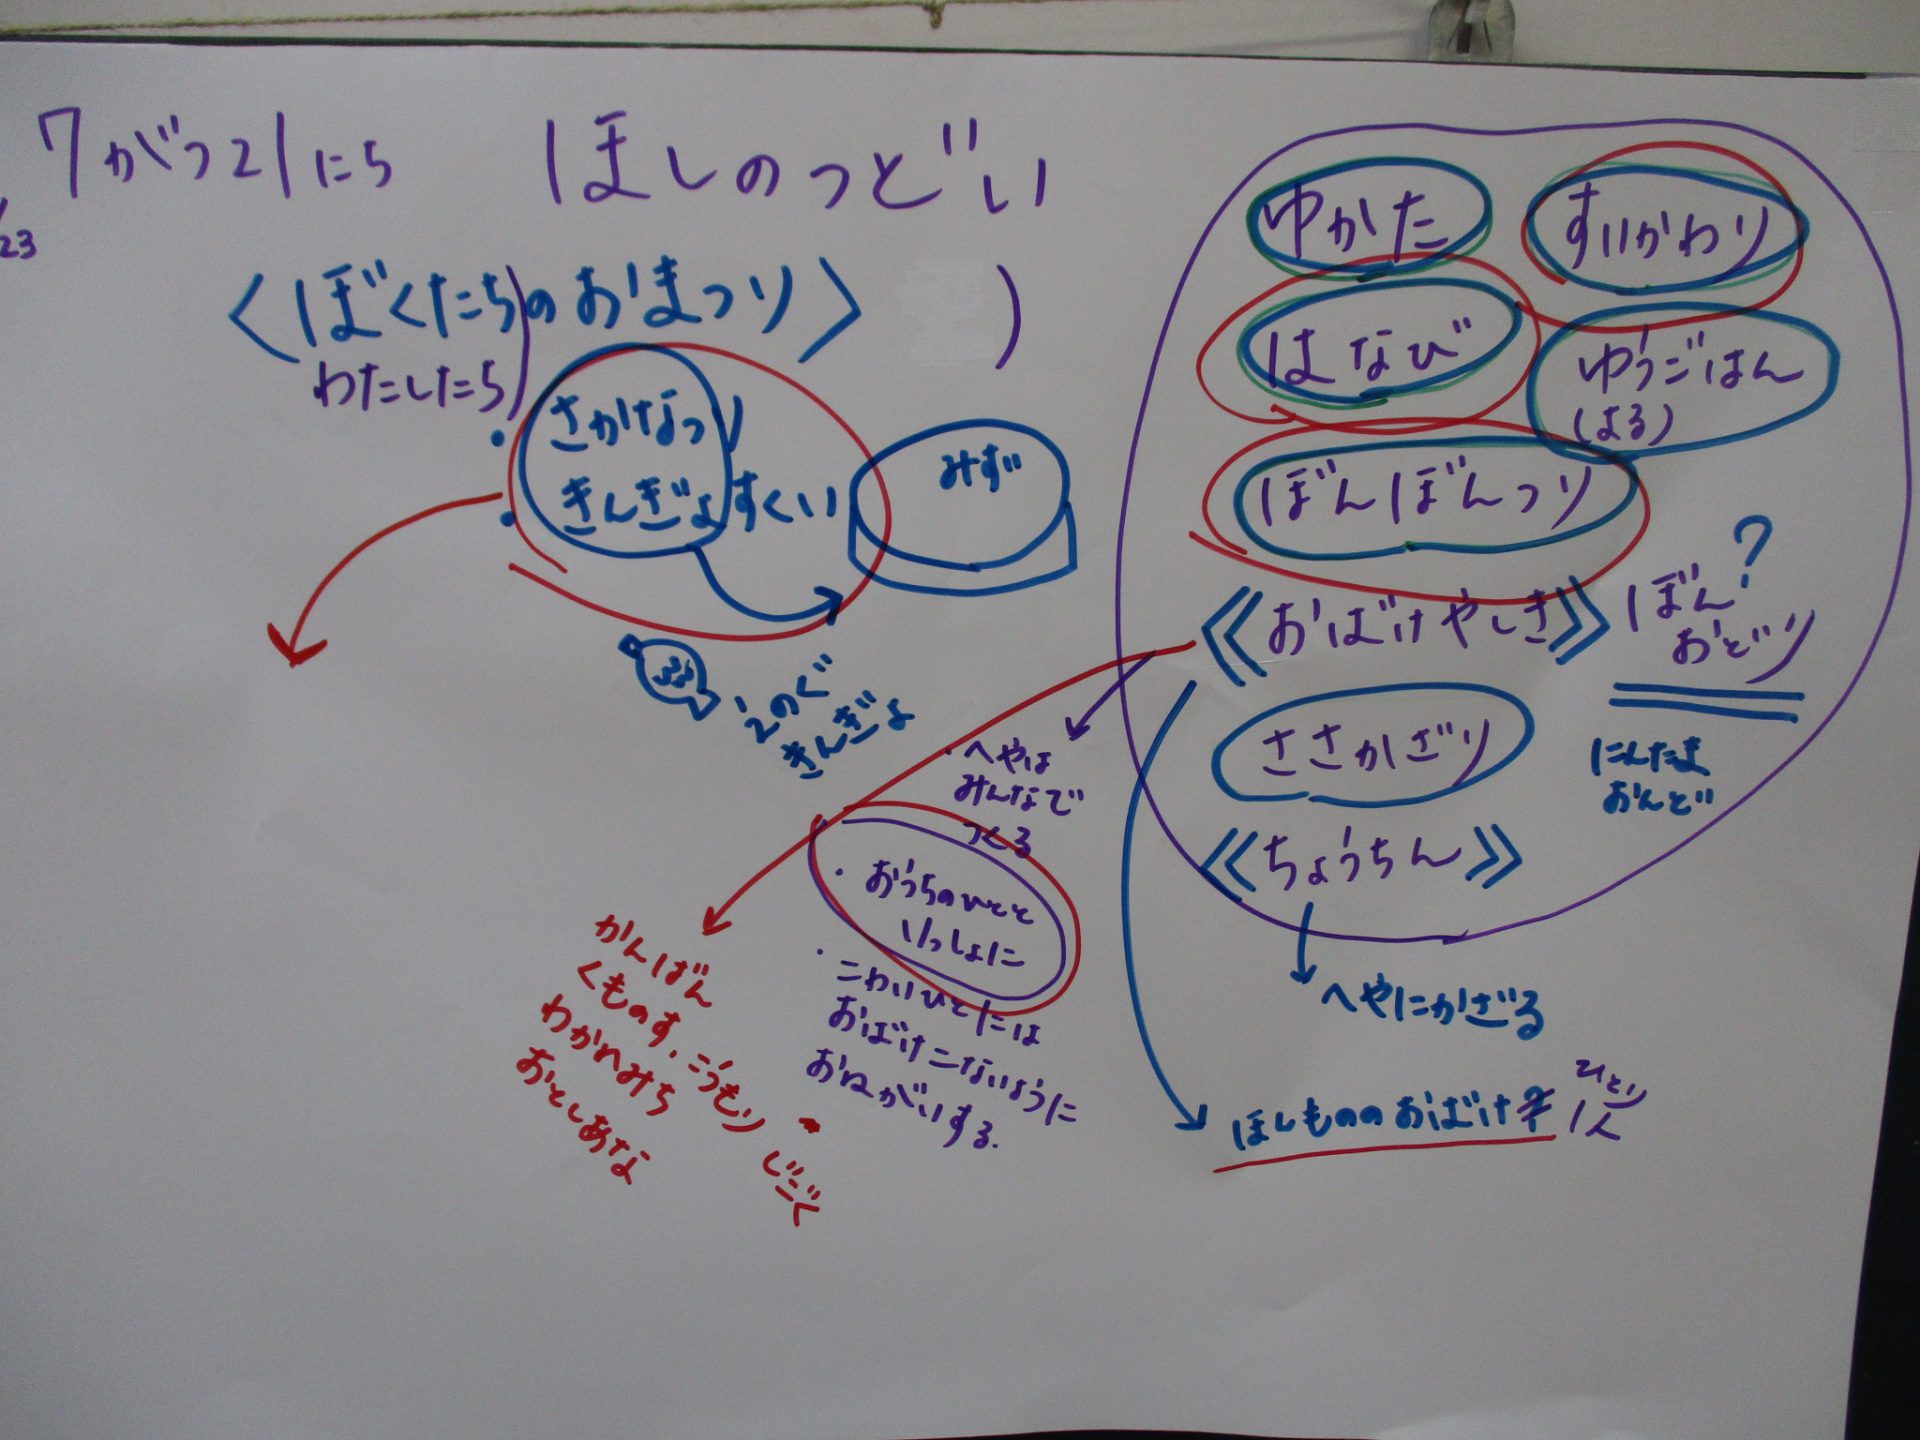 7がつ21にち　ほしのつどい
23
〈ぼくたちのおまつり〉　)
わたしたち
・さかなつり
・きんぎょすくい
みず
えのぐ
きんぎょ
ゆかた
すいかわり
はなび
ゆうごはん
(よる)
ぼんぼんつり
《おばけやしき》
ぼん?
おどり
にんたま
おんど
ささかざり
《ちょうちん》
へやにかざる
・へやは
みんなで
つくる
・おうちのひとと
いっしょに
・こわいひとには
おばけこないように
おねがいする.
かんばん
くものす.こうもり
わかれみち
おとしあな
じごく
ほしもののおばけ
ひとり
1人